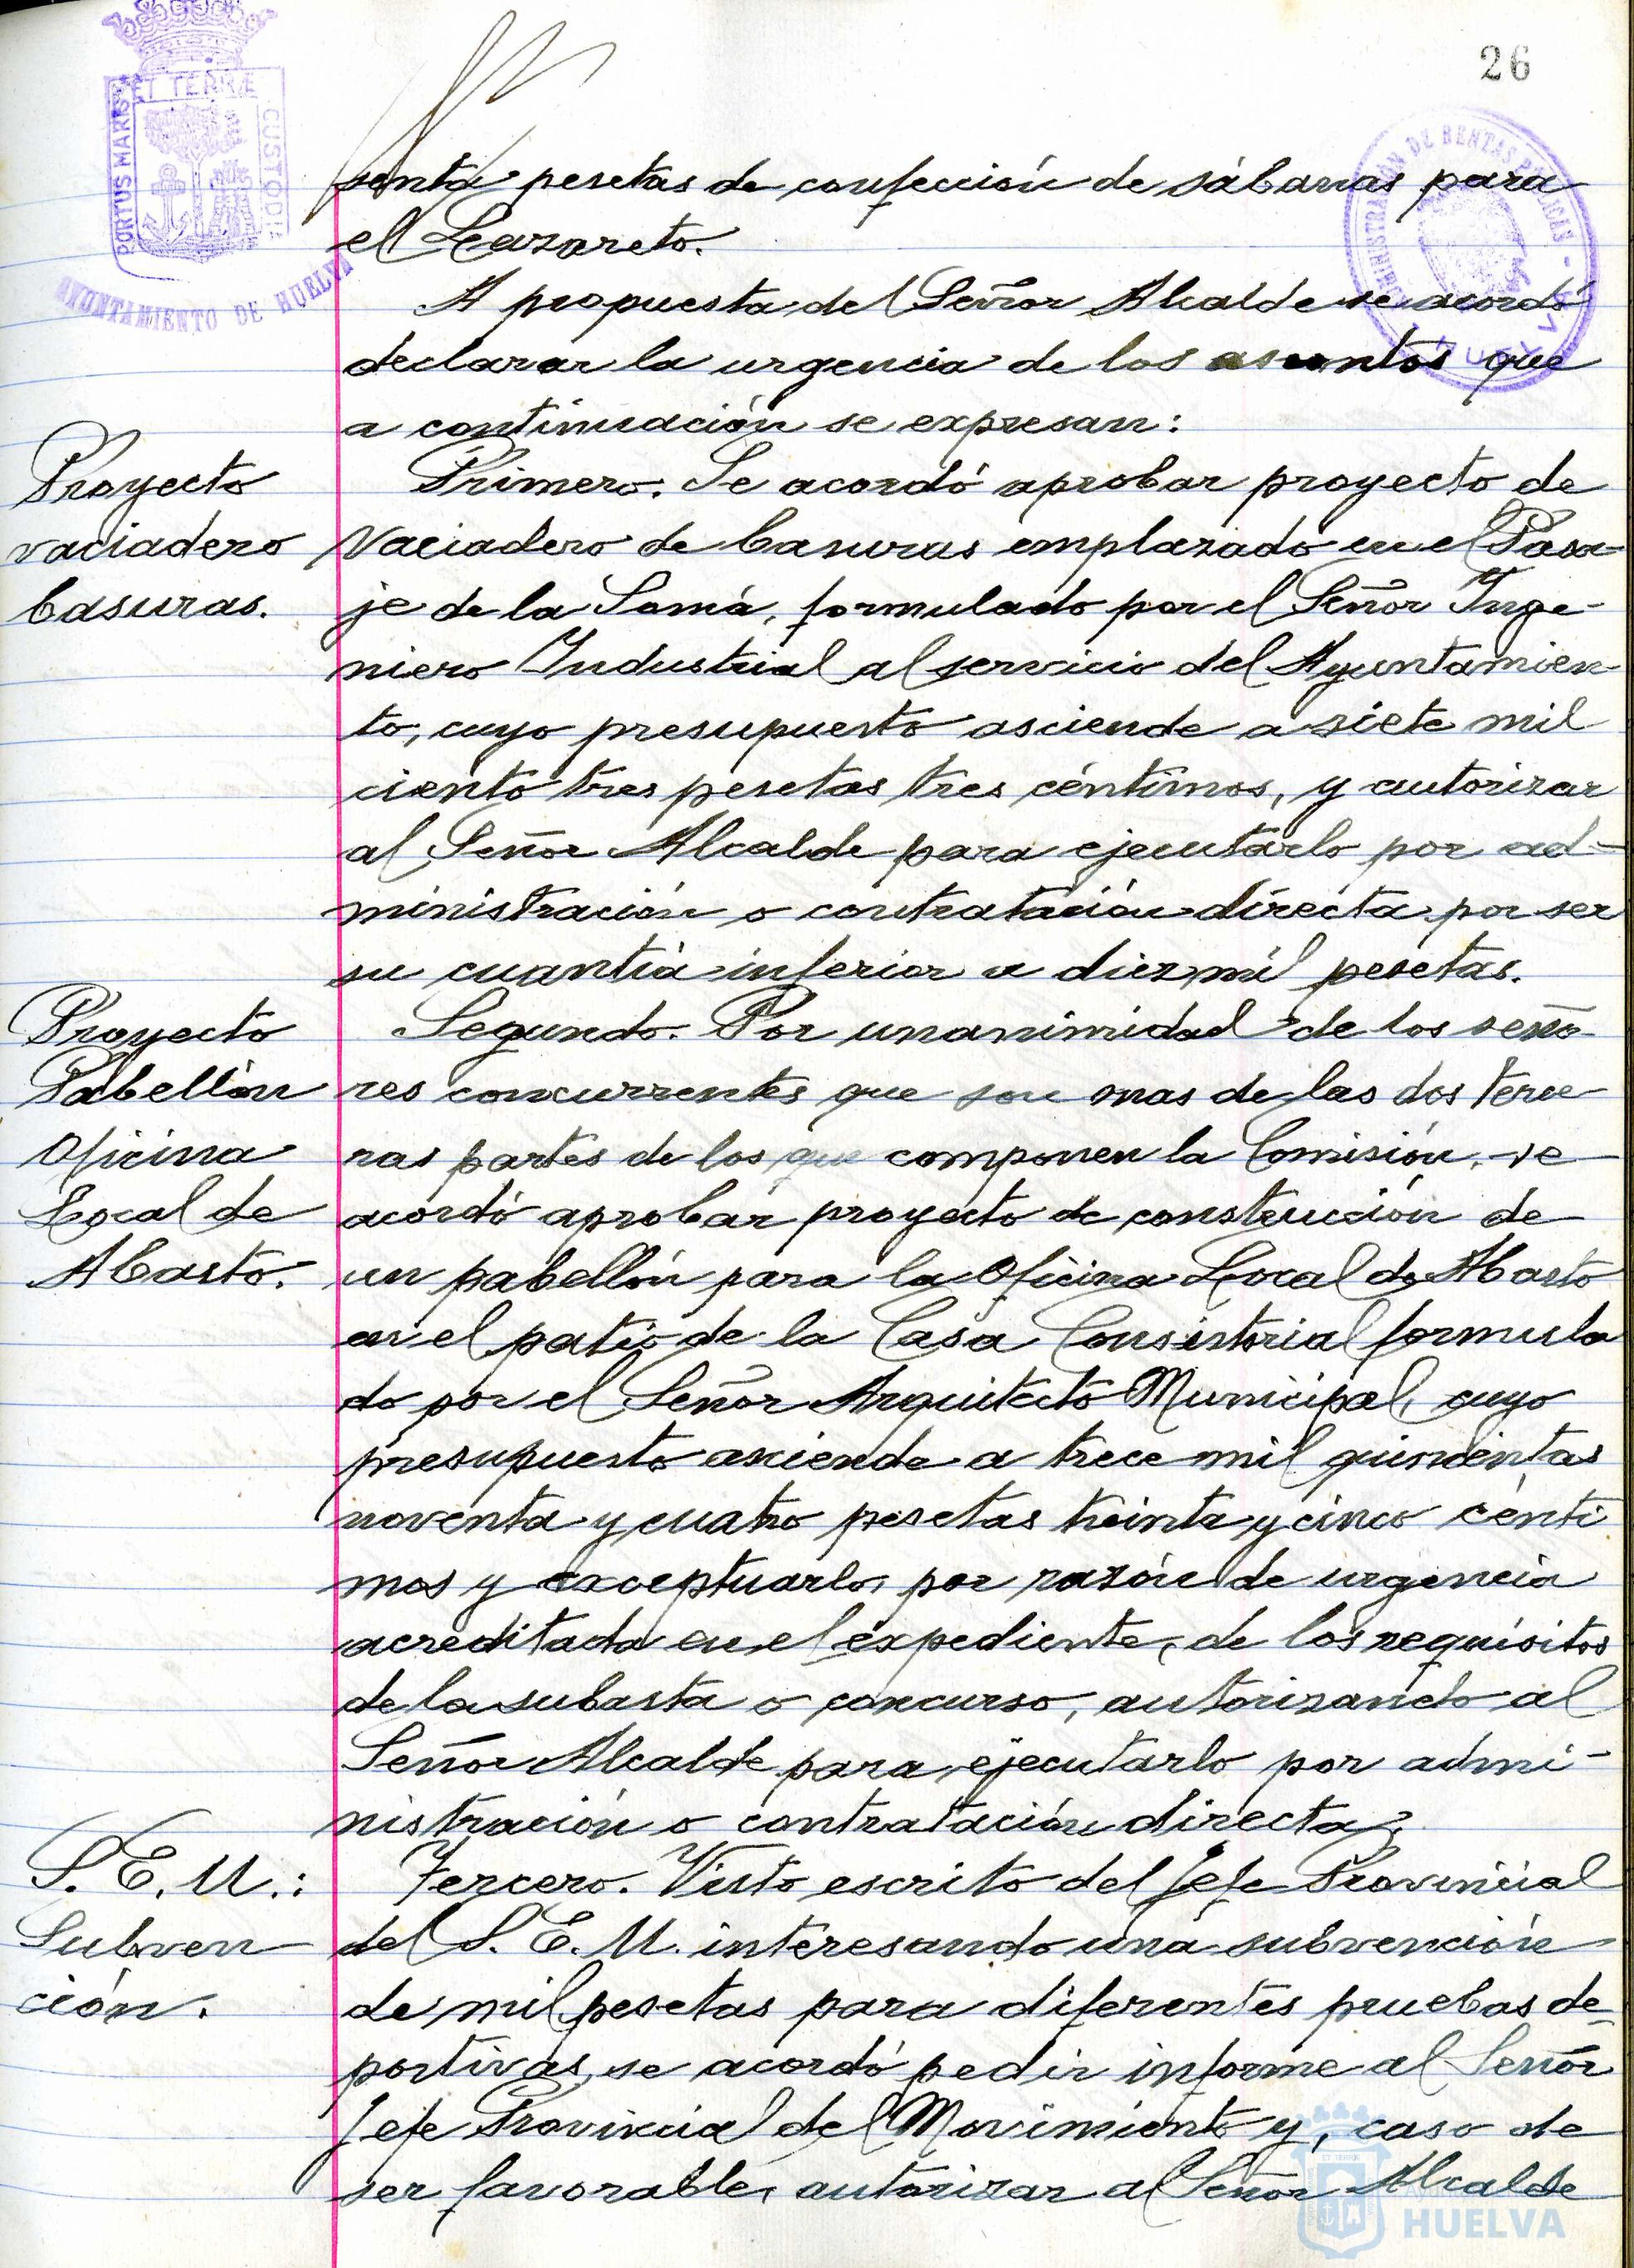 26
PORTUS MARIS ET TERRÆ CUSTODIA
AYUNTAMIENTO DE HUELVA
ADMINISTRACIÓN DE RENTAS PUBLICAS - HUELVA
senta pesetas de confección de sábanas para
el Lazareto.
A propuesta del Señor Alcalde se acordó
declarar la urgencia de los asuntos que
a continuación se expresan:
Proyecto
vaciadero
basuras.
Primero. Se acordó aprobar proyecto de
Vaciadero de basuras emplazado en el Pasa-
je de la Somá, formulado por el Señor Inge-
niero Industrial al servicio del Ayuntamien-
to, cuyo presupuesto asciende a siete mil
ciento tres pesetas tres céntimos, y autorizar
al Señor Alcalde para ejecutarlo por ad-
ministración o contratación directa por ser
su cuantía inferior a diez mil pesetas.
Proyecto
Pabellón
Oficina
Local de
Abasto.
Segundo. Por unanimidad de los seño-
res concurrentes que son mas de las dos terce-
ras partes de los que componen la Comisión, se
acordó aprobar proyecto de construcción de
un pabellón para la Oficina Local de Abasto
en el patio de la Casa Consistorial formula
do por el Señor Arquitecto Municipal, cuyo
presupuesto asciende a trece mil quinientas
noventa y cuatro pesetas treinta y cinco centi
mos y exceptuarlo, por razón de urgencia
acreditada en el expediente, de los requisitos
de la subasta o concurso, autorizando al
Señor Alcalde para ejecutarlo por admi-
nistración o contratación directa.
S. E. U.:
Subven
ción.
Tercero. Visto escrito del Jefe Provincial
del S. E. U. interesando una subvención
de mil pesetas para diferentes pruebas de-
portivas, se acordó pedir informe al Señor
Jefe Provincial del Movimiento y, caso de
ser favorable, autorizar al Señor Alcalde
HUELVA